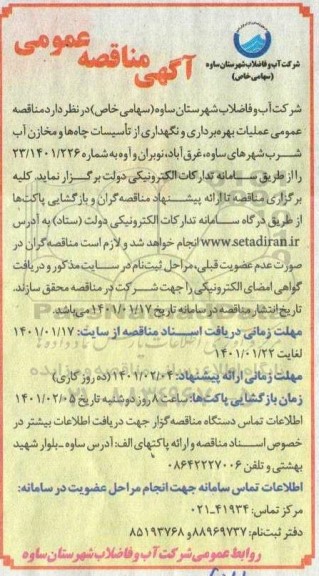 شرکت آب و فاضلاب شهرستان ساوه
(سهامی خاص)
آگهی مناقصه عمومی
شرکت آب و فاضلاب شهرستان ساوه (سهامی خاص) در نظر دارد مناقصه
عمومی عملیات بهره برداری و نگهداری از تأسیسات چاه‌ها و مخازن آب
شرب شهرهای ساوه، غرق آباد، نوبران و آوه به شماره ۲۳/۱۴۰۱/۲۲۶
را از طریق سامانه تدارکات الکترونیکی دولت برگزار نماید. کلیه
برگزاری مناقصه تا ارائه پیشنهاد مناقصه‌گران و بازگشایی پاکت‌ها
از طریق درگاه سامانه تدارکات الکترونیکی دولت (ستاد) به آدرس
www.setadiran.ir انجام خواهد شد و لازم است مناقصه‌گران در
صورت عدم عضویت قبلی، مراحل ثبت‌نام در سایت مذکور و دریافت
گواهی امضای الکترونیکی را جهت شرکت در مناقصه محقق سازند.
تاریخ انتشار مناقصه در سامانه تاریخ ۱۴۰۱/۰۱/۱۷ می‌باشد.
مهلت زمانی دریافت اسناد مناقصه از سایت: ۱۴۰۱/۰۱/۱۷
لغایت ۱۴۰۱/۰۱/۲۲
مهلت زمانی ارائه پیشنهاد: ۱۴۰۱/۰۲/۰۴ (ده روز کاری)
زمان بازگشایی پاکت‌ها: ساعت ۸ روز دوشنبه تاریخ ۱۴۰۱/۰۲/۰۵
اطلاعات تماس دستگاه مناقصه گزار جهت دریافت اطلاعات بیشتر در
خصوص اسناد مناقصه و ارائه پاکتهای الف: آدرس ساوه - بلوار شهید
بهشتی و تلفن ۰۸۶۴۲۲۲۷۰۰۶
اطلاعات تماس سامانه جهت انجام مراحل عضویت در سامانه:
مرکز تماس: ۴۱۹۳۴-۰۲۱
دفتر ثبت‌نام: ۸۸۹۶۹۷۳۷ و ۸۵۱۹۳۷۶۸
روابط عمومی شرکت آب و فاضلاب شهرستان ساوه